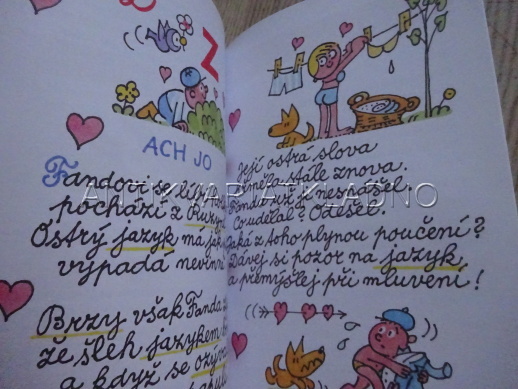 Z
ACH JO
Fandovi se líbí
pochází z Ruzyn
Ostrý jazyk má jak
vypadá nevinn
Brzy však Fanda
že šleh jazykem
a když se ozýv
Její ostrá slova
zněla stále znova.
Fanda už ji nesnášel.
Co udělal? Odešel.
Jaká z toho plynou poučení?
Dávej si pozor na jazyk
a přemýšlej při mluvení!
ANTIKVARIÁT KLADNO